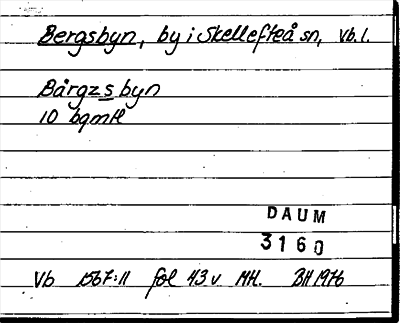 Bergsbyn, by i Skellefteå sn, Vb.l.
Bårgzsbyn
10 bgmtl
DAUM
3160
Vb 1567:11 fol 43v MH. BH 1976